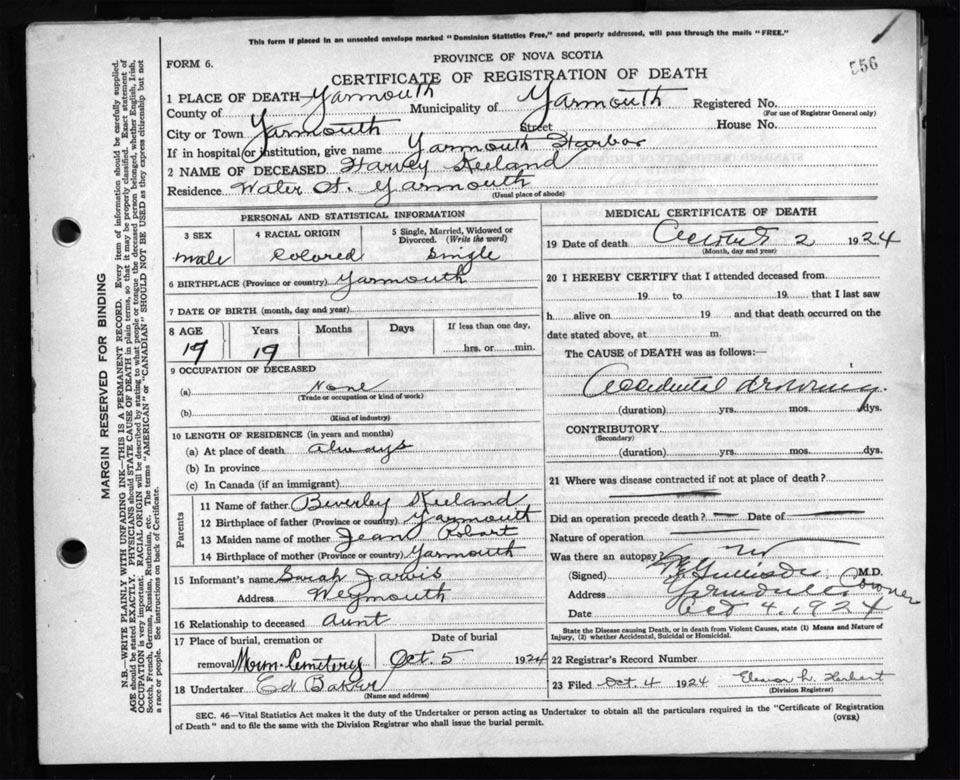 This form if placed in an unsealed envelope marked "Dominion Statistics Free," and properly addressed, will pass through the mails "FREE."
PROVINCE OF NOVA SCOTIA
FORM 6.
CERTIFICATE OF REGISTRATION OF DEATH
556
1 PLACE OF DEATH—
County of Yarmouth Municipality of Yarmouth Registered No.
(For use of Registrar General only)
City or Town Yarmouth Street House No.
If in hospital or institution, give name Yarmouth Harbor
2 NAME OF DECEASED Harvey Keeland
Residence Water St. Yarmouth
(Usual place of abode)
PERSONAL AND STATISTICAL INFORMATION
3 SEX 4 RACIAL ORIGIN 5 Single, Married, Widowed or Divorced. (Write the word)
male Colored Single
6 BIRTHPLACE (Province or country) Yarmouth
7 DATE OF BIRTH (month, day and year)
8 AGE Years Months Days If less than one day,
19 19 hrs. or min.
9 OCCUPATION OF DECEASED
(a) None
(Trade or occupation or kind of work)
(b)
(Kind of industry)
10 LENGTH OF RESIDENCE (in years and months)
(a) At place of death always
(b) In province
(c) In Canada (if an immigrant)
Parents
11 Name of father Beverley Keeland
12 Birthplace of father (Province or country) Yarmouth
13 Maiden name of mother Jean Robart
14 Birthplace of mother (Province or country) Yarmouth
15 Informant's name Sarah Jarvis
Address Weymouth
16 Relationship to deceased aunt
17 Place of burial, cremation or Date of burial
removal Moun. Cemetery Oct. 5 1924
18 Undertaker Ed Baker
(Name and address)
MEDICAL CERTIFICATE OF DEATH
19 Date of death October 2 1924
(Month, day and year)
20 I HEREBY CERTIFY that I attended deceased from
19 to 19 that I last saw
h alive on 19 and that death occurred on the
date stated above, at m.
The CAUSE OF DEATH was as follows:—
Accidental drowning.
(duration) yrs. mos. dys.
CONTRIBUTORY
(Secondary)
(duration) yrs. mos. dys.
21 Where was disease contracted if not at place of death?
Did an operation precede death? — Date of —
Nature of operation
Was there an autopsy? no
(Signed) M.D.
Coroner
Address Yarmouth
Date Oct 4, 1924
State the Disease causing Death, or in death from Violent Causes, state (1) Means and Nature of
Injury, (2) whether Accidental, Suicidal or Homicidal.
22 Registrar's Record Number
23 Filed Oct. 4 1924 Eleanor L. Herbert
(Division Registrar)
SEC. 46—Vital Statistics Act makes it the duty of the Undertaker or person acting as Undertaker to obtain all the particulars required in the "Certificate of Registration
of Death" and to file the same with the Division Registrar who shall issue the burial permit.
(OVER)
MARGIN RESERVED FOR BINDING
N.B.—WRITE PLAINLY WITH UNFADING INK—THIS IS A PERMANENT RECORD. Every item of information should be carefully supplied.
AGE should be stated EXACTLY. PHYSICIANS should STATE CAUSE OF DEATH in plain terms, so that it may be properly classified. Exact statement of
OCCUPATION is very important. RACIAL ORIGIN will be described by stating to what people or tongue the deceased person belonged, whether English, Irish,
Scotch, French, German, Russian, Ruthenian, etc. The terms "AMERICAN" or "CANADIAN" SHOULD NOT BE USED as they express citizenship but not
a race or people. See instructions on back of Certificate.